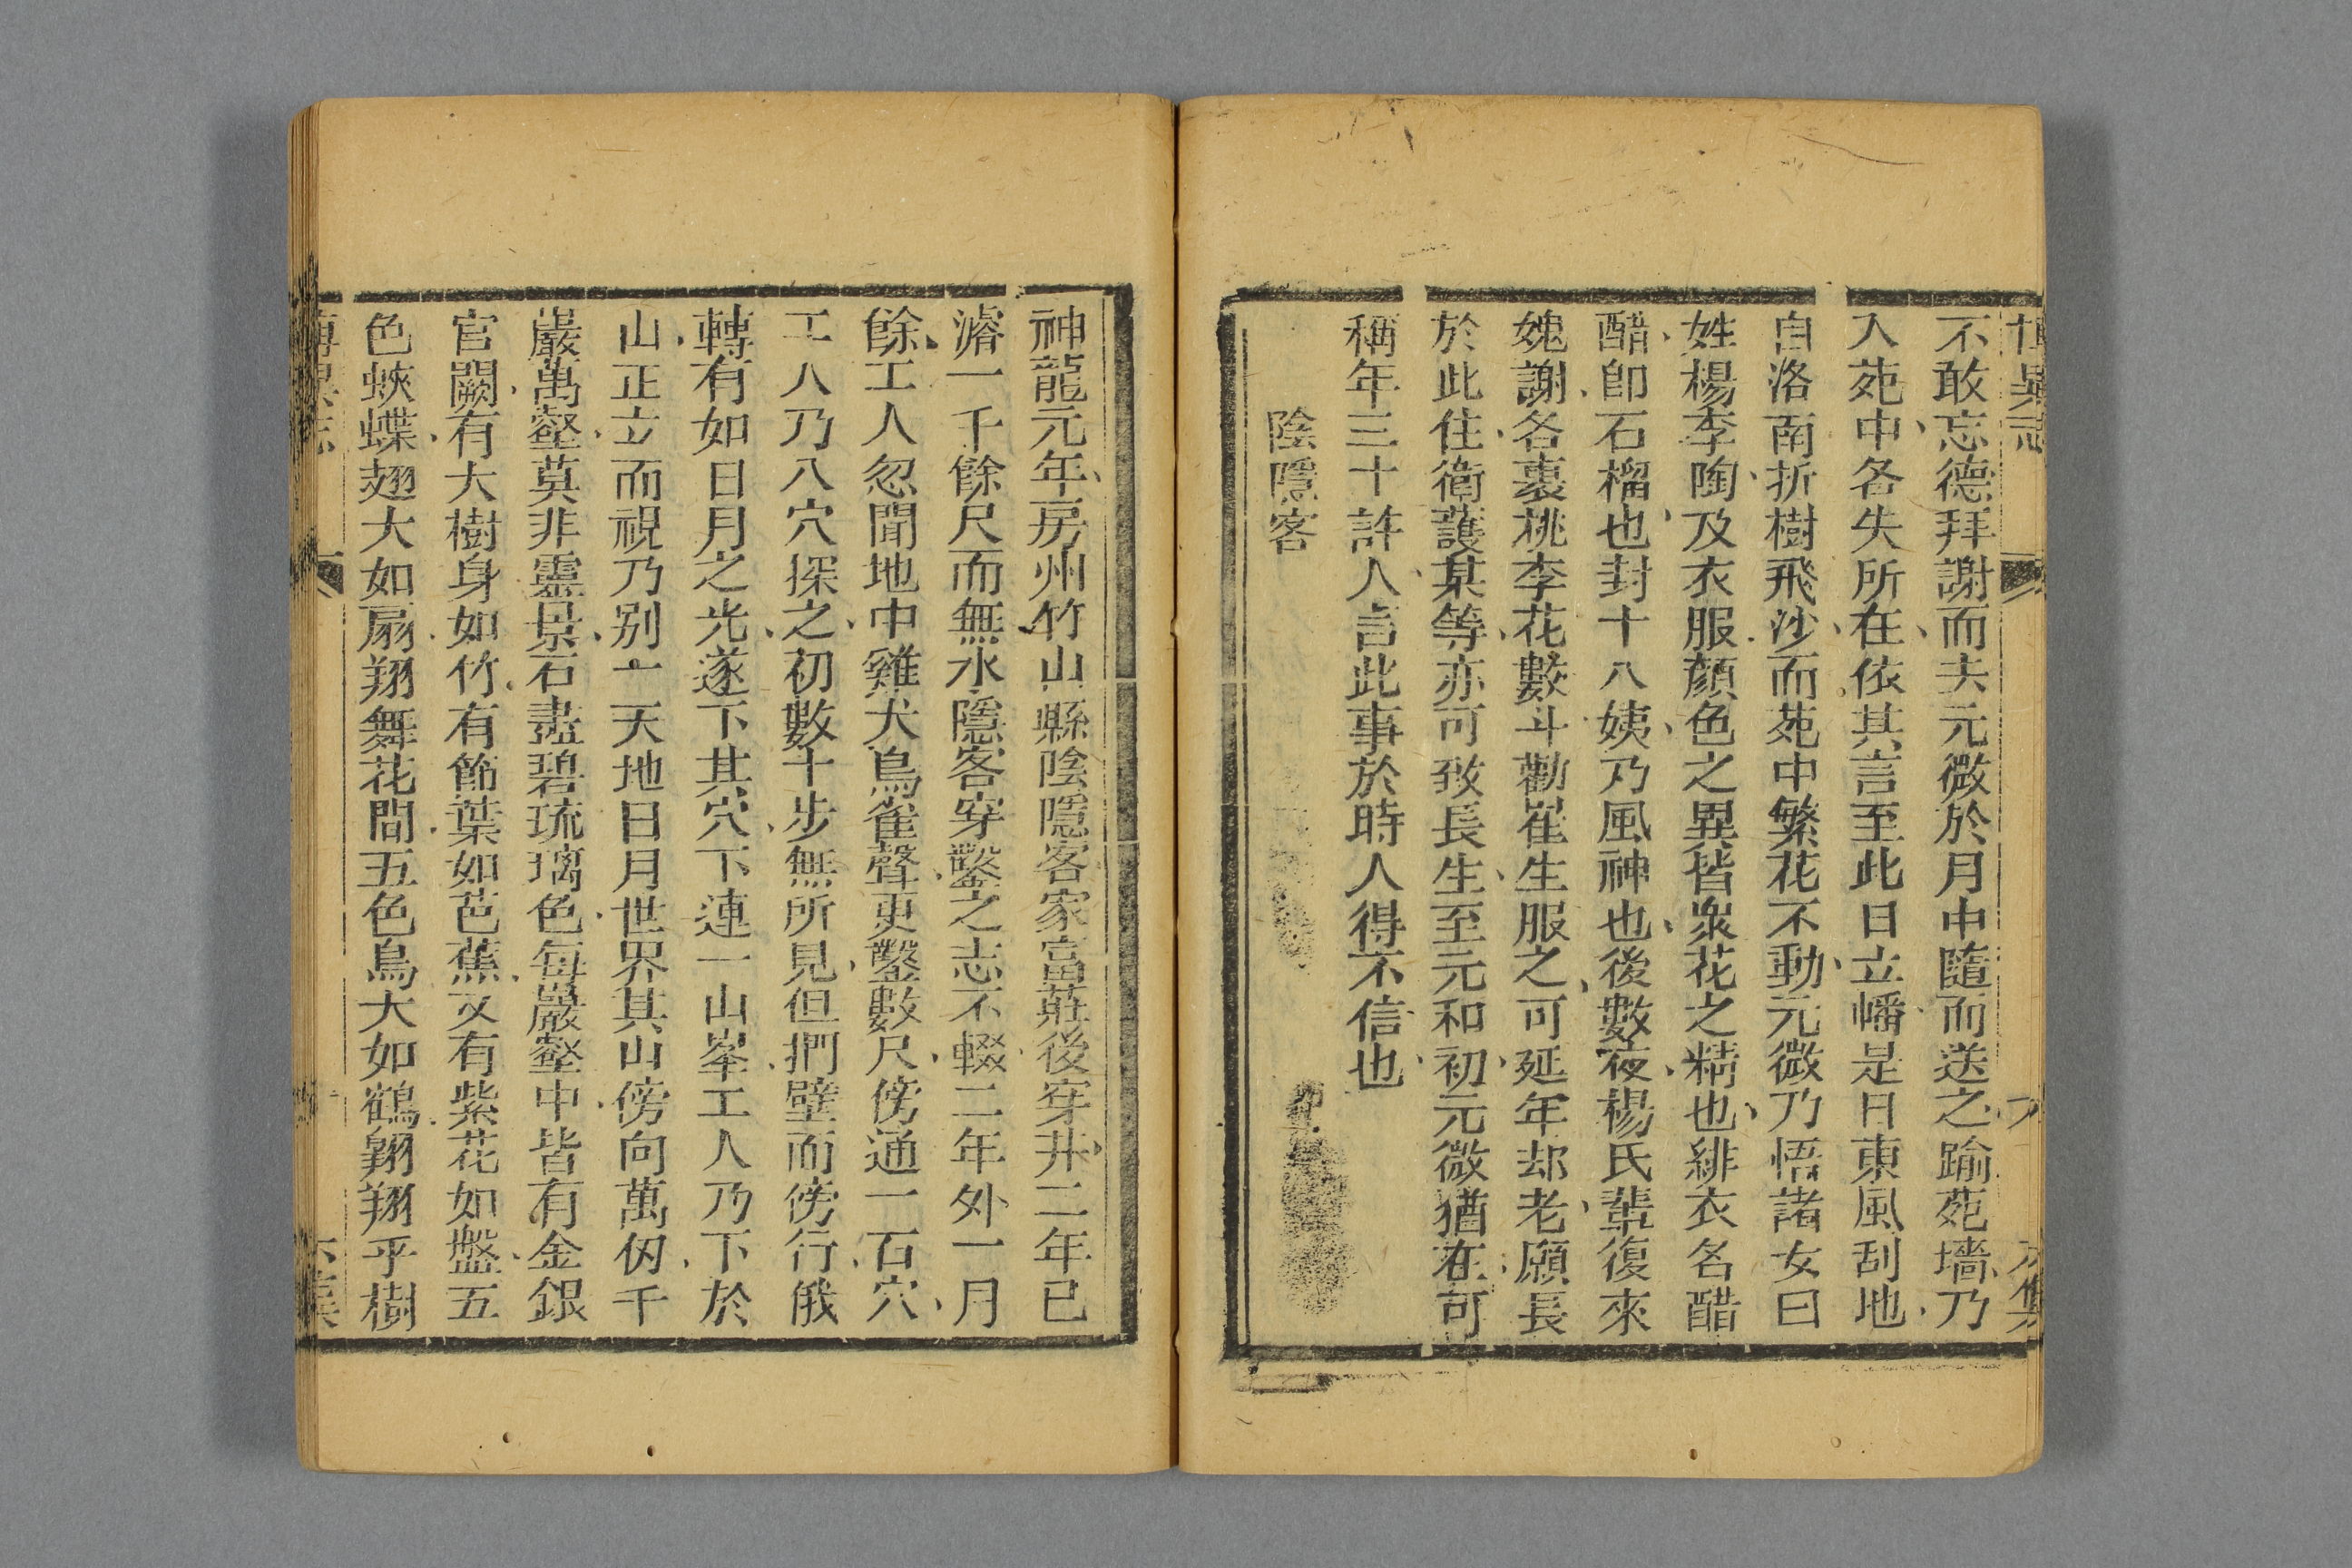 不敢忘德拜謝而去元微於月中隨而送之踰苑墻乃
入苑中各失所在依其言至此日立幡是日東風刮地
自洛南折樹飛沙而苑中繁花不動元微乃悟諸女曰
姓楊李陶及衣服顏色之異皆衆花之精也緋衣名醋
醋卽石榴也封十八姨乃風神也後數夜楊氏輩復來
媿謝各裹桃李花數斗勸崔生服之可延年却老願長
於此住衛護某等亦可致長生至元和初元微猶在可
稱年三十許人言此事於時人得不信也
陰隱客
神龍元年房州竹山縣陰隱客家富莊後穿井二年已
濬一千餘尺而無水隱客穿鑿之志不輟二年外一月
餘工人忽聞地中雞犬鳥雀聲更鑿數尺傍通一石穴
工人乃入穴探之初數十步無所見但捫壁而傍行俄
轉有如日月之光遂下其穴下連一山峯工人乃下於
山正立而視乃别一天地日月世界其山傍向萬仭千
巖萬壑莫非靈景石盡碧琉璃色每巖壑中皆有金銀
宮闕有大樹身如竹有節葉如芭蕉又有紫花如盤五
色蛺蝶翅大如扇翔舞花間五色鳥大如鶴翺翔乎樹
博異志